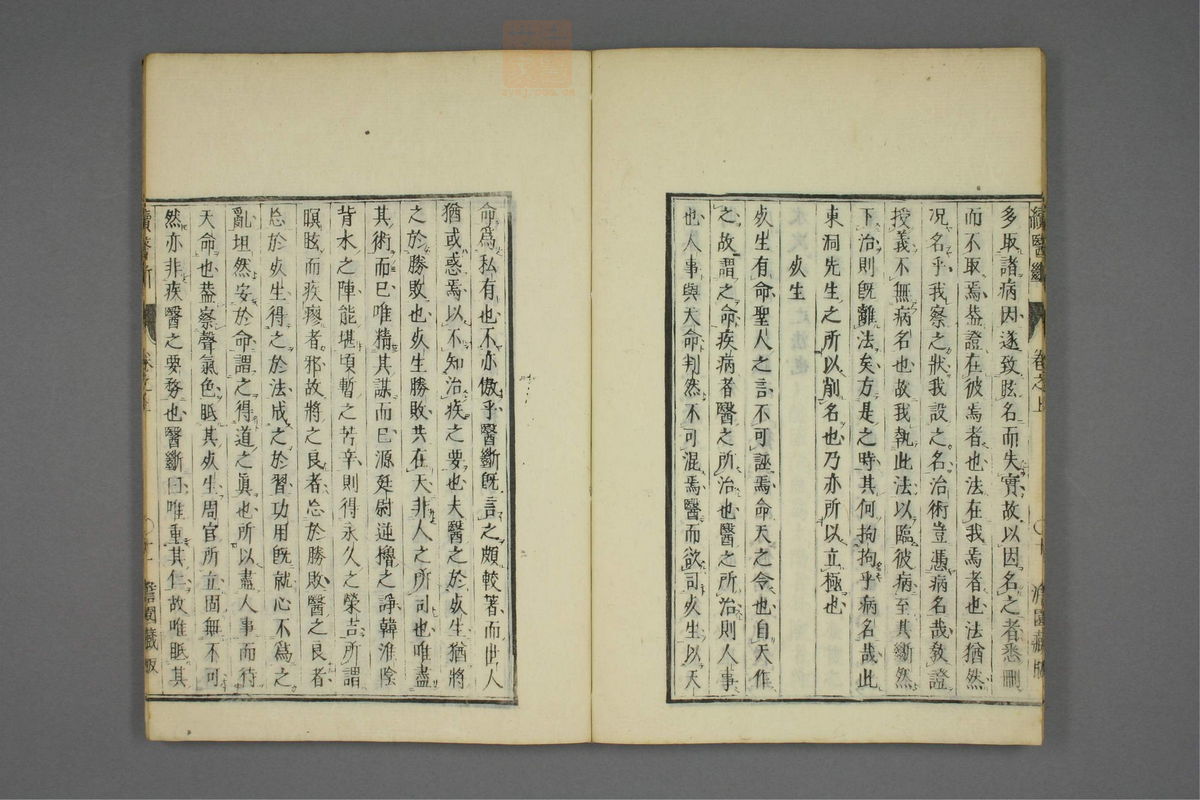 續醫斷 卷之上 〇十 澹園藏版
多取諸病因遂致眩名而失實故以因名之者悉刪
而不取焉葢證在彼焉者也法在我焉者也法猶然
况名乎我察之狀我設之名治術豈憑病名哉敎證
授義不無病名也故我執此法以臨彼病至其斷然
下治則旣離法矣方是之時其何拘拘乎病名哉此
東洞先生之所以削名也乃亦所以立極也
死生
死生有命聖人之言不可誣焉命天之令也自天作
之故謂之命疾病者醫之所治也醫之所治則人事
也人事與天命判然不可混焉醫而欲司死生以天
命爲私有也不亦傲乎醫斷旣言之頗較著而世人
猶或惑焉以不知治疾之要也夫醫之於死生猶將
之於勝敗也死生勝敗共在天非人之所司也唯盡
其術而已唯精其謀而已源廷尉逆櫓之諍韓淮陰
背水之陣能堪頃暫之苦辛則得永久之榮吉所謂
瞑眩而疾瘳者邪故將之良者忘於勝敗醫之良者
忘於死生得之於法成之於習功用旣就心不爲之
亂坦然安於命謂之得道之眞也所以盡人事而待
天命也葢察聲氣色眡其死生周官所立固無不可
然亦非疾醫之要務也醫斷曰唯重其仁故唯眡其
續醫斷 卷之上 〇十一 澹園藏版